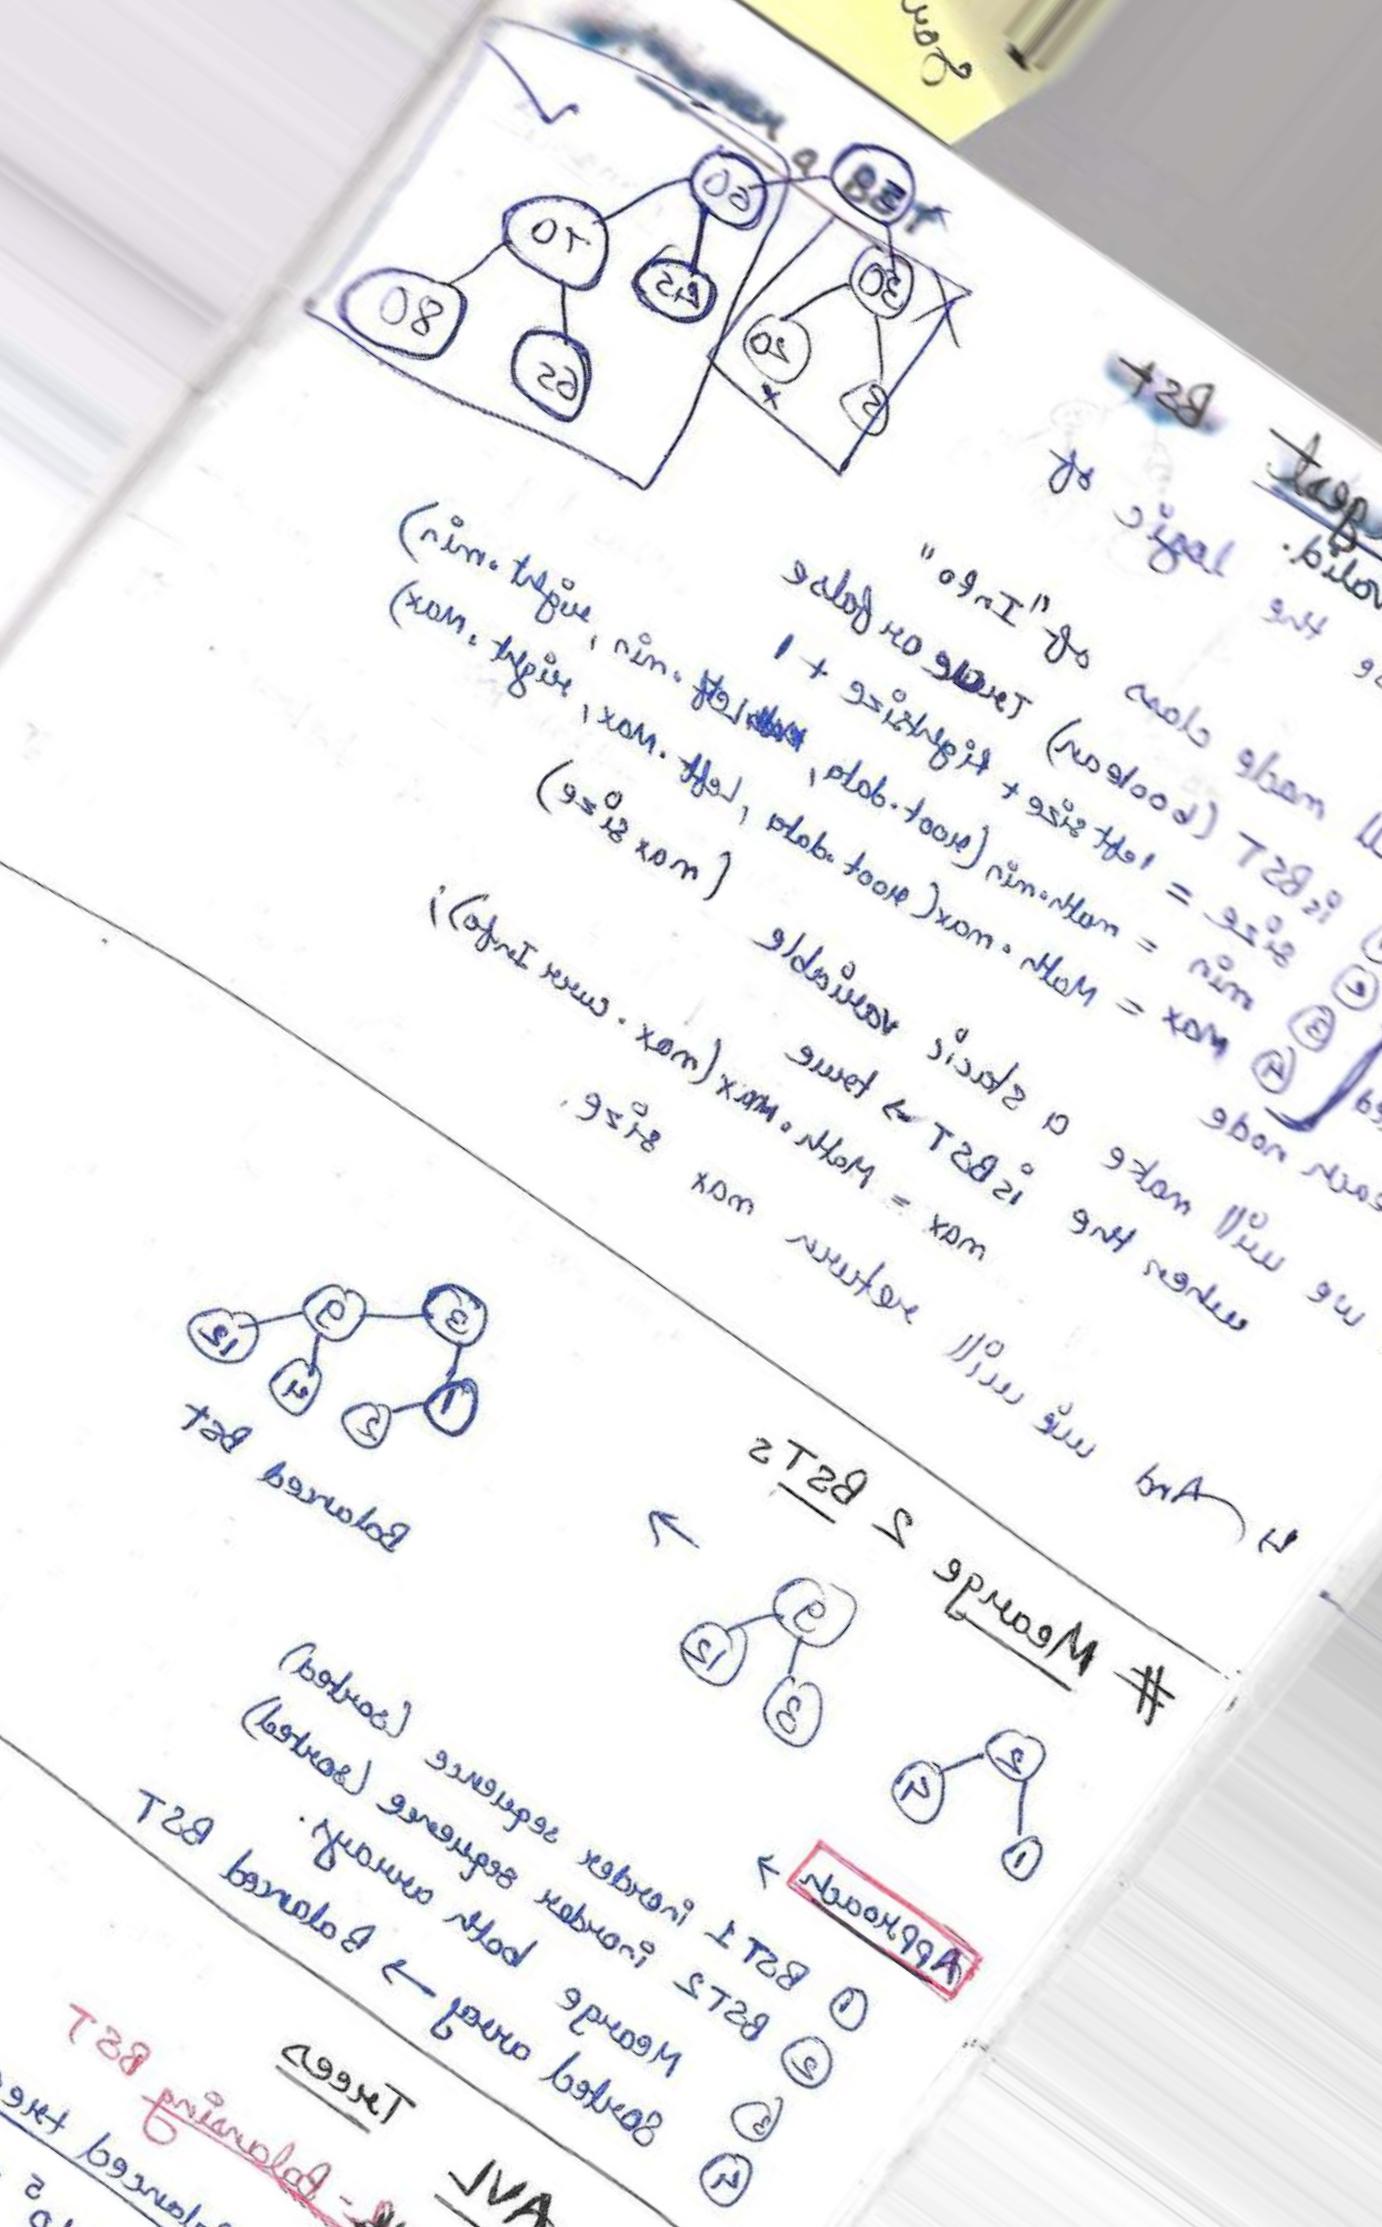 in a BST
Largest BST
valid.
the logic of
node class of "Info"
① isBST (boolean) True or false
② size = left size + rightsize + 1
③ min = math.min (root.data, left.min, right.min)
④ Max = Math.max (root.data, left.max, right.max)
each node
we will make a static variable (max size)
when the isBST → true
max = Math.max (max. curr Info);
And we will return max size.
50
30
60
5
20
45
70
65
80
# Mearge 2 BSTs
2
1
4
9
3
12
→
3
1
2
9
4
12
Balanced BST
Approach →
① BST 1 inorder sequence (sorted)
② BST2 inorder sequence (sorted)
③ Mearge both arrays.
④ Sorted array → Balanced BST
AVL Trees
- Balancing BST
balanced tree
5